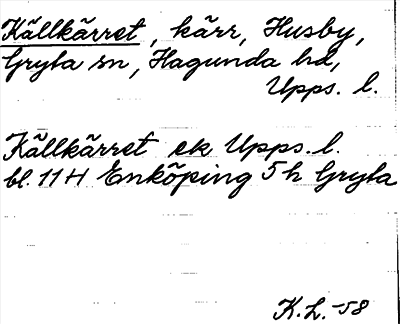 Källkärret, kärr, Husby,
Gryta sn, Hagunda hd,
Upps. l.
Källkärret ek Upps. l.
bl. 11 H Enköping 5 h Gryta
K.L. -58